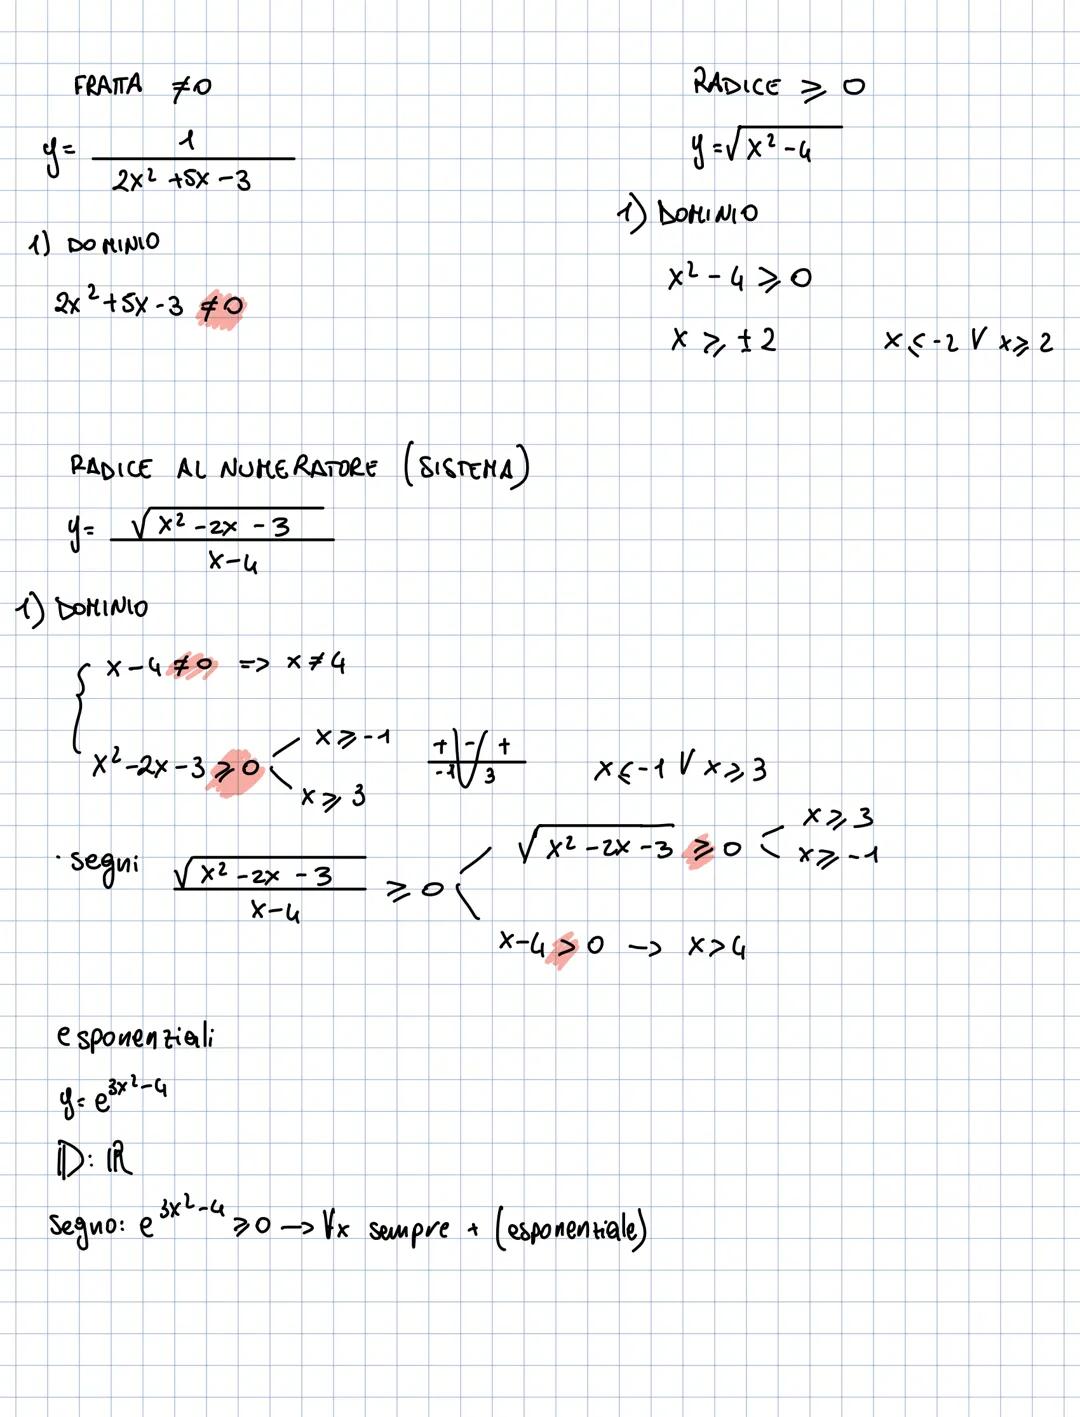 FRATTA ≠0
y= 1 / 2x² +5x -3
1) DOMINIO
2x²+5x-3 ≠0
RADICE ⩾ 0
y=√x²-4
1) DOMINIO
x²-4 ⩾ 0
x ⩾ ±2 x⩽-2 V x⩾2
RADICE AL NUMERATORE (SISTEMA)
y= √x²-2x-3 / x-4
1) DOMINIO
x-4≠0 => x≠4
x²-2x-3⩾0 x⩾-1 x⩾3 + - + -1 3 x⩽-1 V x⩾3
· segni √x²-2x-3 / x-4 ⩾0 √x²-2x-3 ⩾0 x⩾3 x⩾-1
x-4>0 -> x>4
esponenziali
y=e^3x²-4
D: ℝ
segno: e^3x²-4 ⩾0 -> ∀x sempre + (esponenziale)